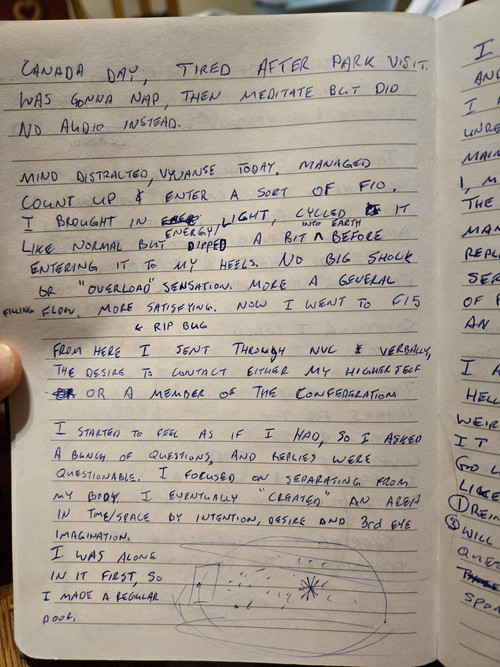 CANADA DAY, TIRED AFTER PARK VISIT.
WAS GONNA NAP, THEN MEDITATE BUT DID
NO AUDIO INSTEAD.
MIND DISTRACTED, VYVANSE TODAY. MANAGED
COUNT UP & ENTER A SORT OF F10.
I BROUGHT IN ENERGY/LIGHT, CYCLED IT
LIKE NORMAL BUT DIPPED A BIT INTO EARTH BEFORE
ENTERING IT TO MY HEELS. NO BIG SHOCK
OR "OVERLOAD" SENSATION. MORE A GENERAL
FILLING FLOW. MORE SATISFYING. NOW I WENT TO F15
& RIP BUG
FROM HERE I SENT THROUGH NVC & VERBALLY,
THE DESIRE TO CONTACT EITHER MY HIGHERSELF
OR A MEMBER OF THE CONFEDERATION
I STARTED TO FEEL AS IF I HAD, SO I ASKED
A BUNCH OF QUESTIONS, AND REPLIES WERE
QUESTIONABLE. I FOCUSED ON SEPARATING FROM
MY BODY. I EVENTUALLY "CREATED" AN AREA
IN TIME/SPACE BY INTENTION, DESIRE AND 3rd EYE
IMAGINATION.
I WAS ALONG
IN IT FIRST, SO
I MADE A REGULAR
DOOR.
I
AN
I
UNRE
MAIN
I, M
THE
MAN
REPL
SER
OF
AN
I A
HELL
WEIR
IT
GO L
LIKE
① REIN
② WILL
QUES
SPO